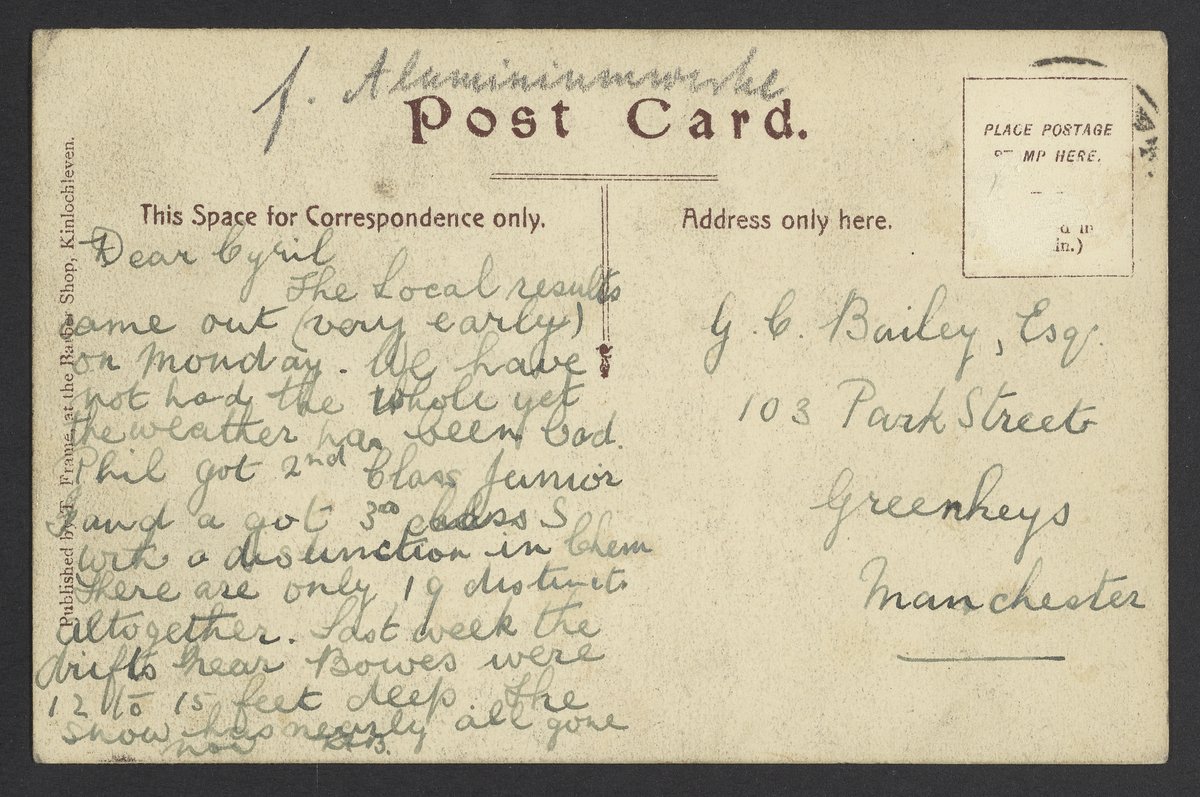 f. Aluminiumwerke
Post Card.
PLACE POSTAGE
ST MP HERE.
d in
in.)
This Space for Correspondence only.
Address only here.
Published by T. Frame, at the Barber Shop, Kinlochleven.
Dear Cyril
The Local results
came out (very early)
on Monday. We have
not had the whole yet
the weather has been bad.
Phil got 2nd Class Junior
and a got 3rd class S
with a distinction in Chem
There are only 19 distinct.
altogether. Last week the
drifts near Bowes were
12 to 15 feet deep. The
snow has nearly all gone
now
G. C. Bailey, Esq.
103 Park Street
Greenheys
Manchester